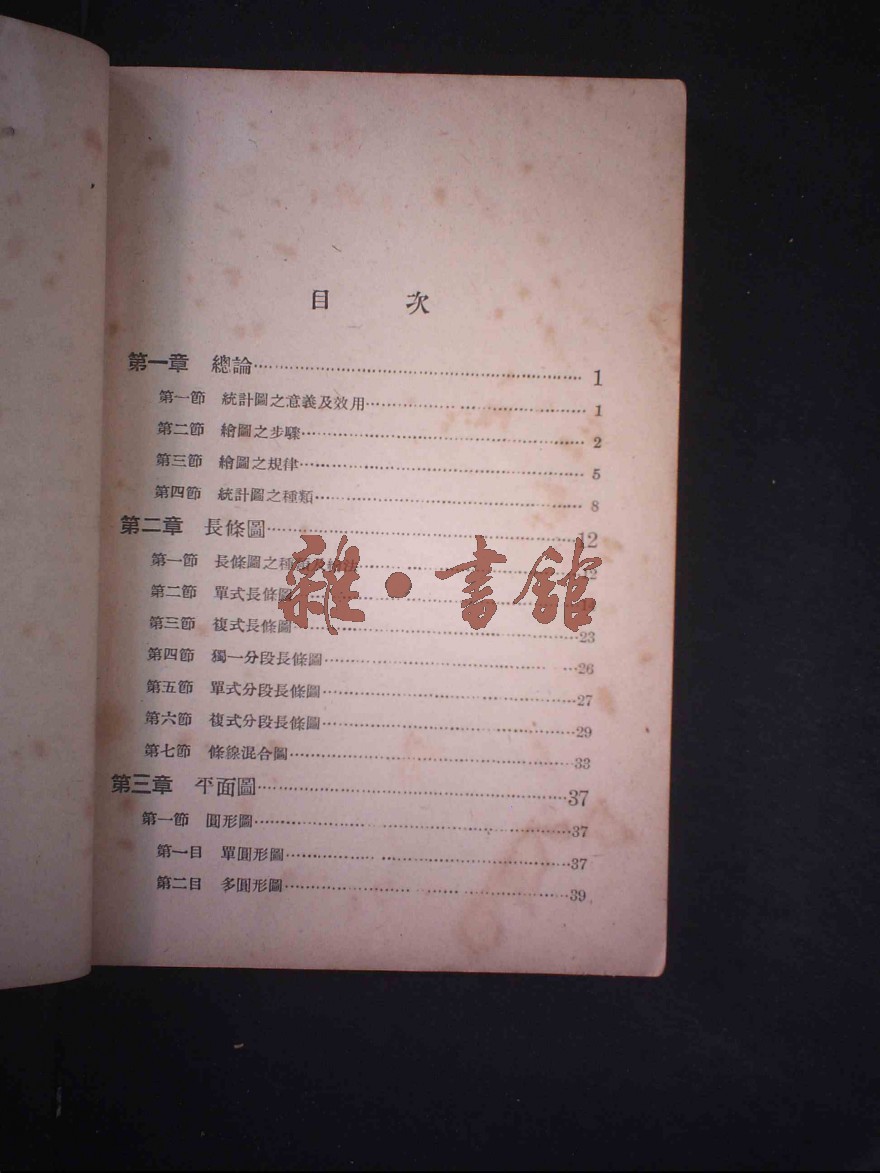 目 次
第一章 總論 1
第一節 統計圖之意義及效用 1
第二節 繪圖之步驟 2
第三節 繪圖之規律 5
第四節 統計圖之種類 8
第二章 長條圖 12
第一節 長條圖之種類及繪法 12
第二節 單式長條圖
第三節 複式長條圖 23
第四節 獨一分段長條圖 26
第五節 單式分段長條圖 27
第六節 複式分段長條圖 29
第七節 條線混合圖 33
第三章 平面圖 37
第一節 圓形圖 37
第一目 單圓形圖 37
第二目 多圓形圖 39
雜·書館